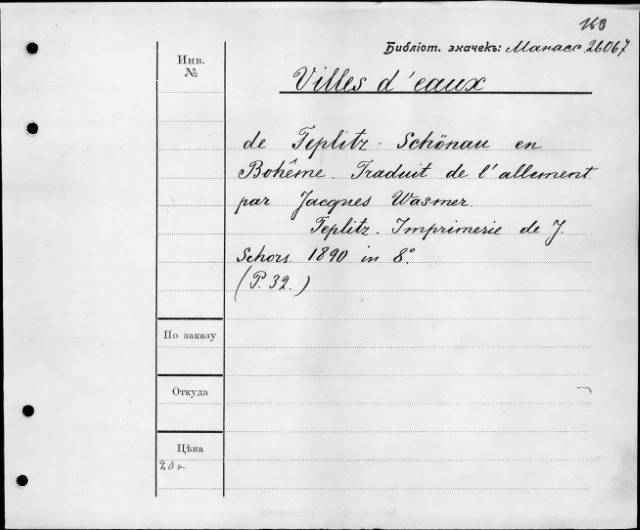 168
Библіот. значекъ: Манасс 26067
Инв.
№
Villes d'eaux
de Teplitz-Schönau en
Bohême. Traduit de l'allement
par Jacques Wasmer.
Teplitz. Imprimerie de J.
Schors 1890 in 8°.
(P. 32.)
По заказу
Откуда
Цѣна
20к